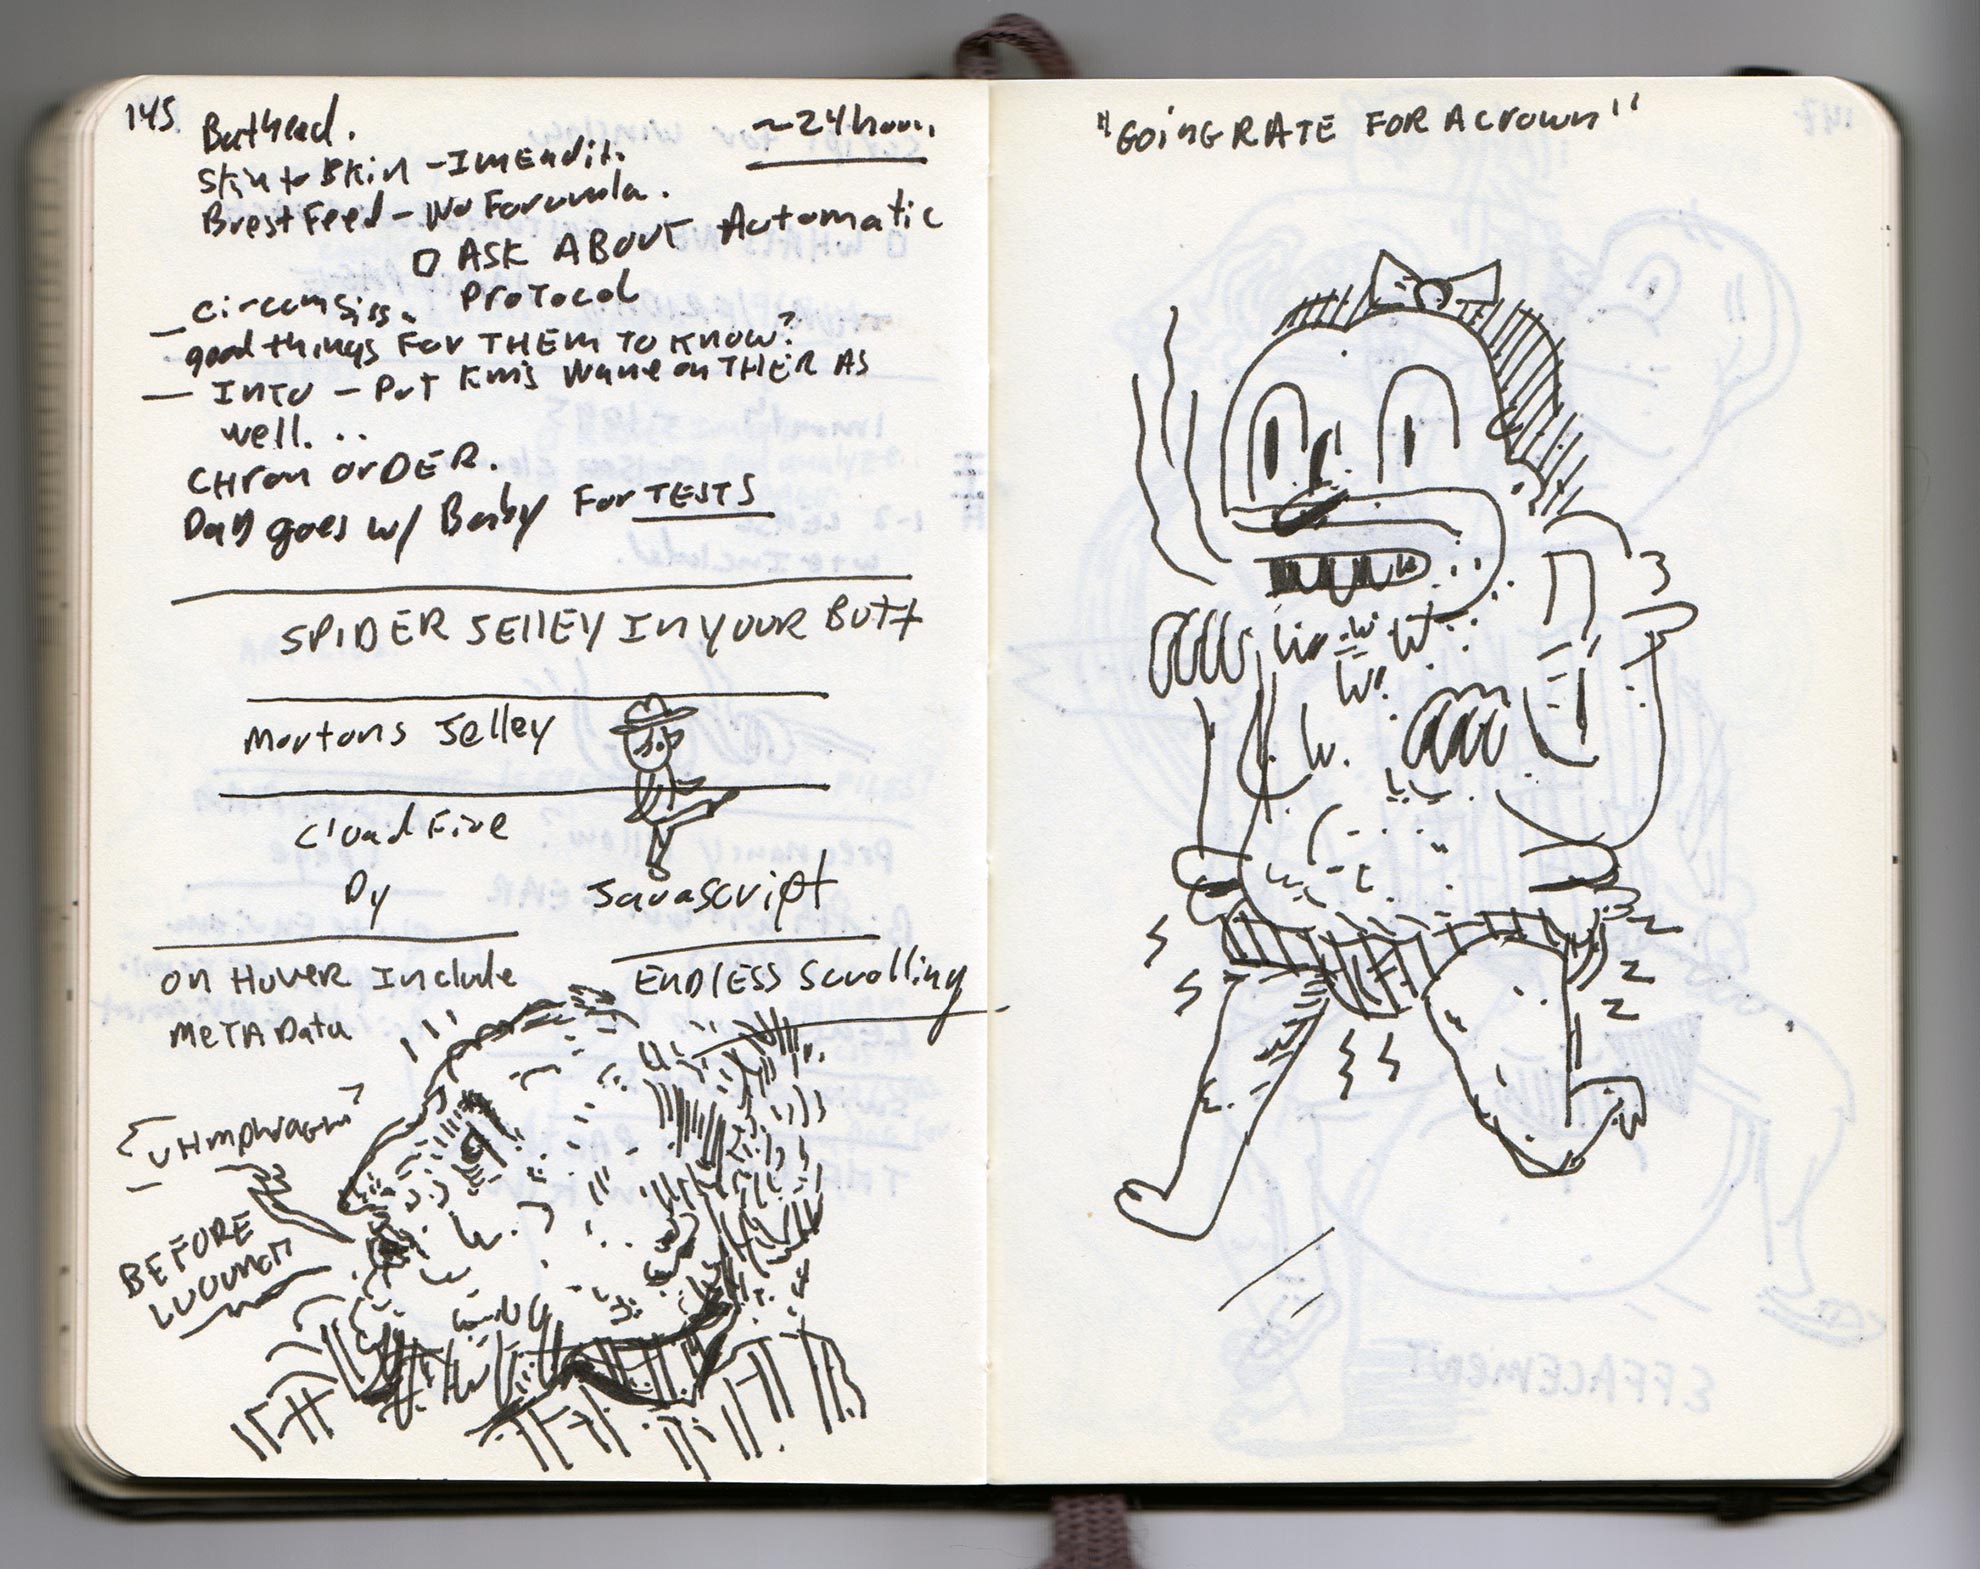 145.
Buthead.
~24 hour.
Skin to Skin - Imendit.
Brest Feed - No Foromola.
ASK ABOUT Automatic
Protocol
— circumsiss.
good things FOR THEM TO KNOW?
— INTO - PUT Km's Wane on THER AS
well...
CHron orDER.
Dad goes w/ Baby For TESTS
SPIDER JELLEY IN YOUR BUTT
Mortons Jelley
Cloud Five
By
Javascript
on Hover Include
META Data
ENDLESS Scrolling
BEFORE
"GOING RATE FOR A Crown"
EFFACEMENT